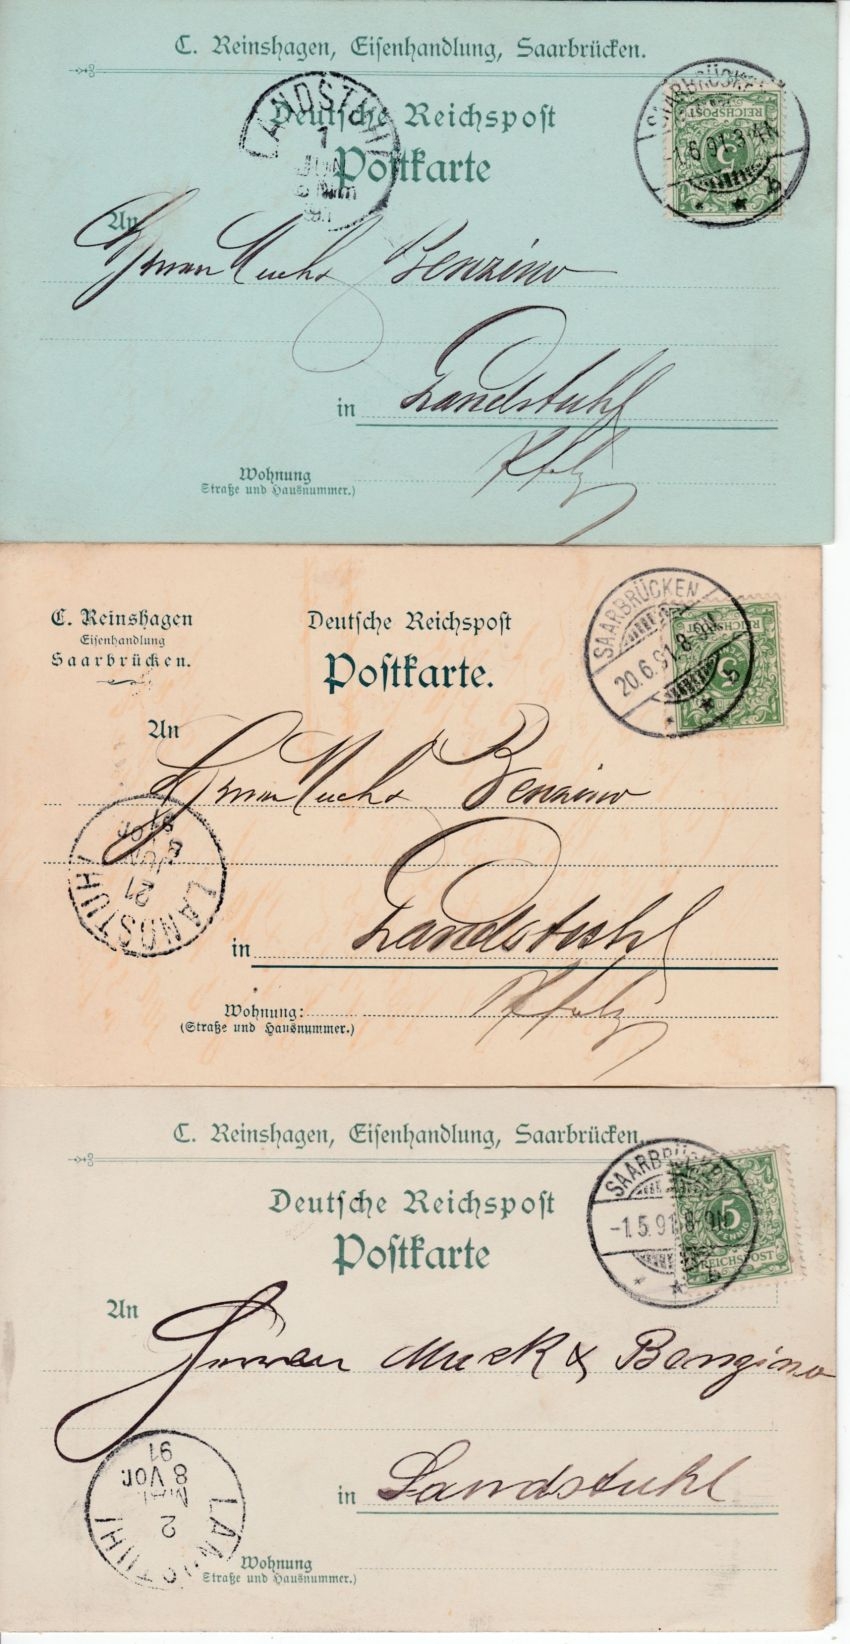 C. Reinshagen, Eisenhandlung, Saarbrücken.
LANDSTUHL
1
JUN
Nm
91
SAARBRÜCKEN
-1.6.91.3-4N
b
REICHSPOST
5
Deutsche Reichspost
Postkarte
An
Herren Muck & Benzino
in Landstuhl
Pfalz
Wohnung
Straße und Hausnummer.)
C. Reinshagen
Eisenhandlung
Saarbrücken.
Deutsche Reichspost
Postkarte.
SAARBRÜCKEN
20.6.91.8-9N
b
REICHSPOST
5
An
Herren Muck & Benzino
LANDSTUHL
21
JUN
8 Vor.
91
in Landstuhl
Pfalz
Wohnung:
(Straße und Hausnummer.)
C. Reinshagen, Eisenhandlung, Saarbrücken.
Deutsche Reichspost
Postkarte
SAARBRÜCKEN
-1.5.91.8-9N
b
5
PFENNIG
REICHSPOST
An
Herren Muck & Benzino
LANDSTUHL
2
MAI
8 Vor.
91
in Landstuhl
Wohnung
Straße und Hausnummer.)